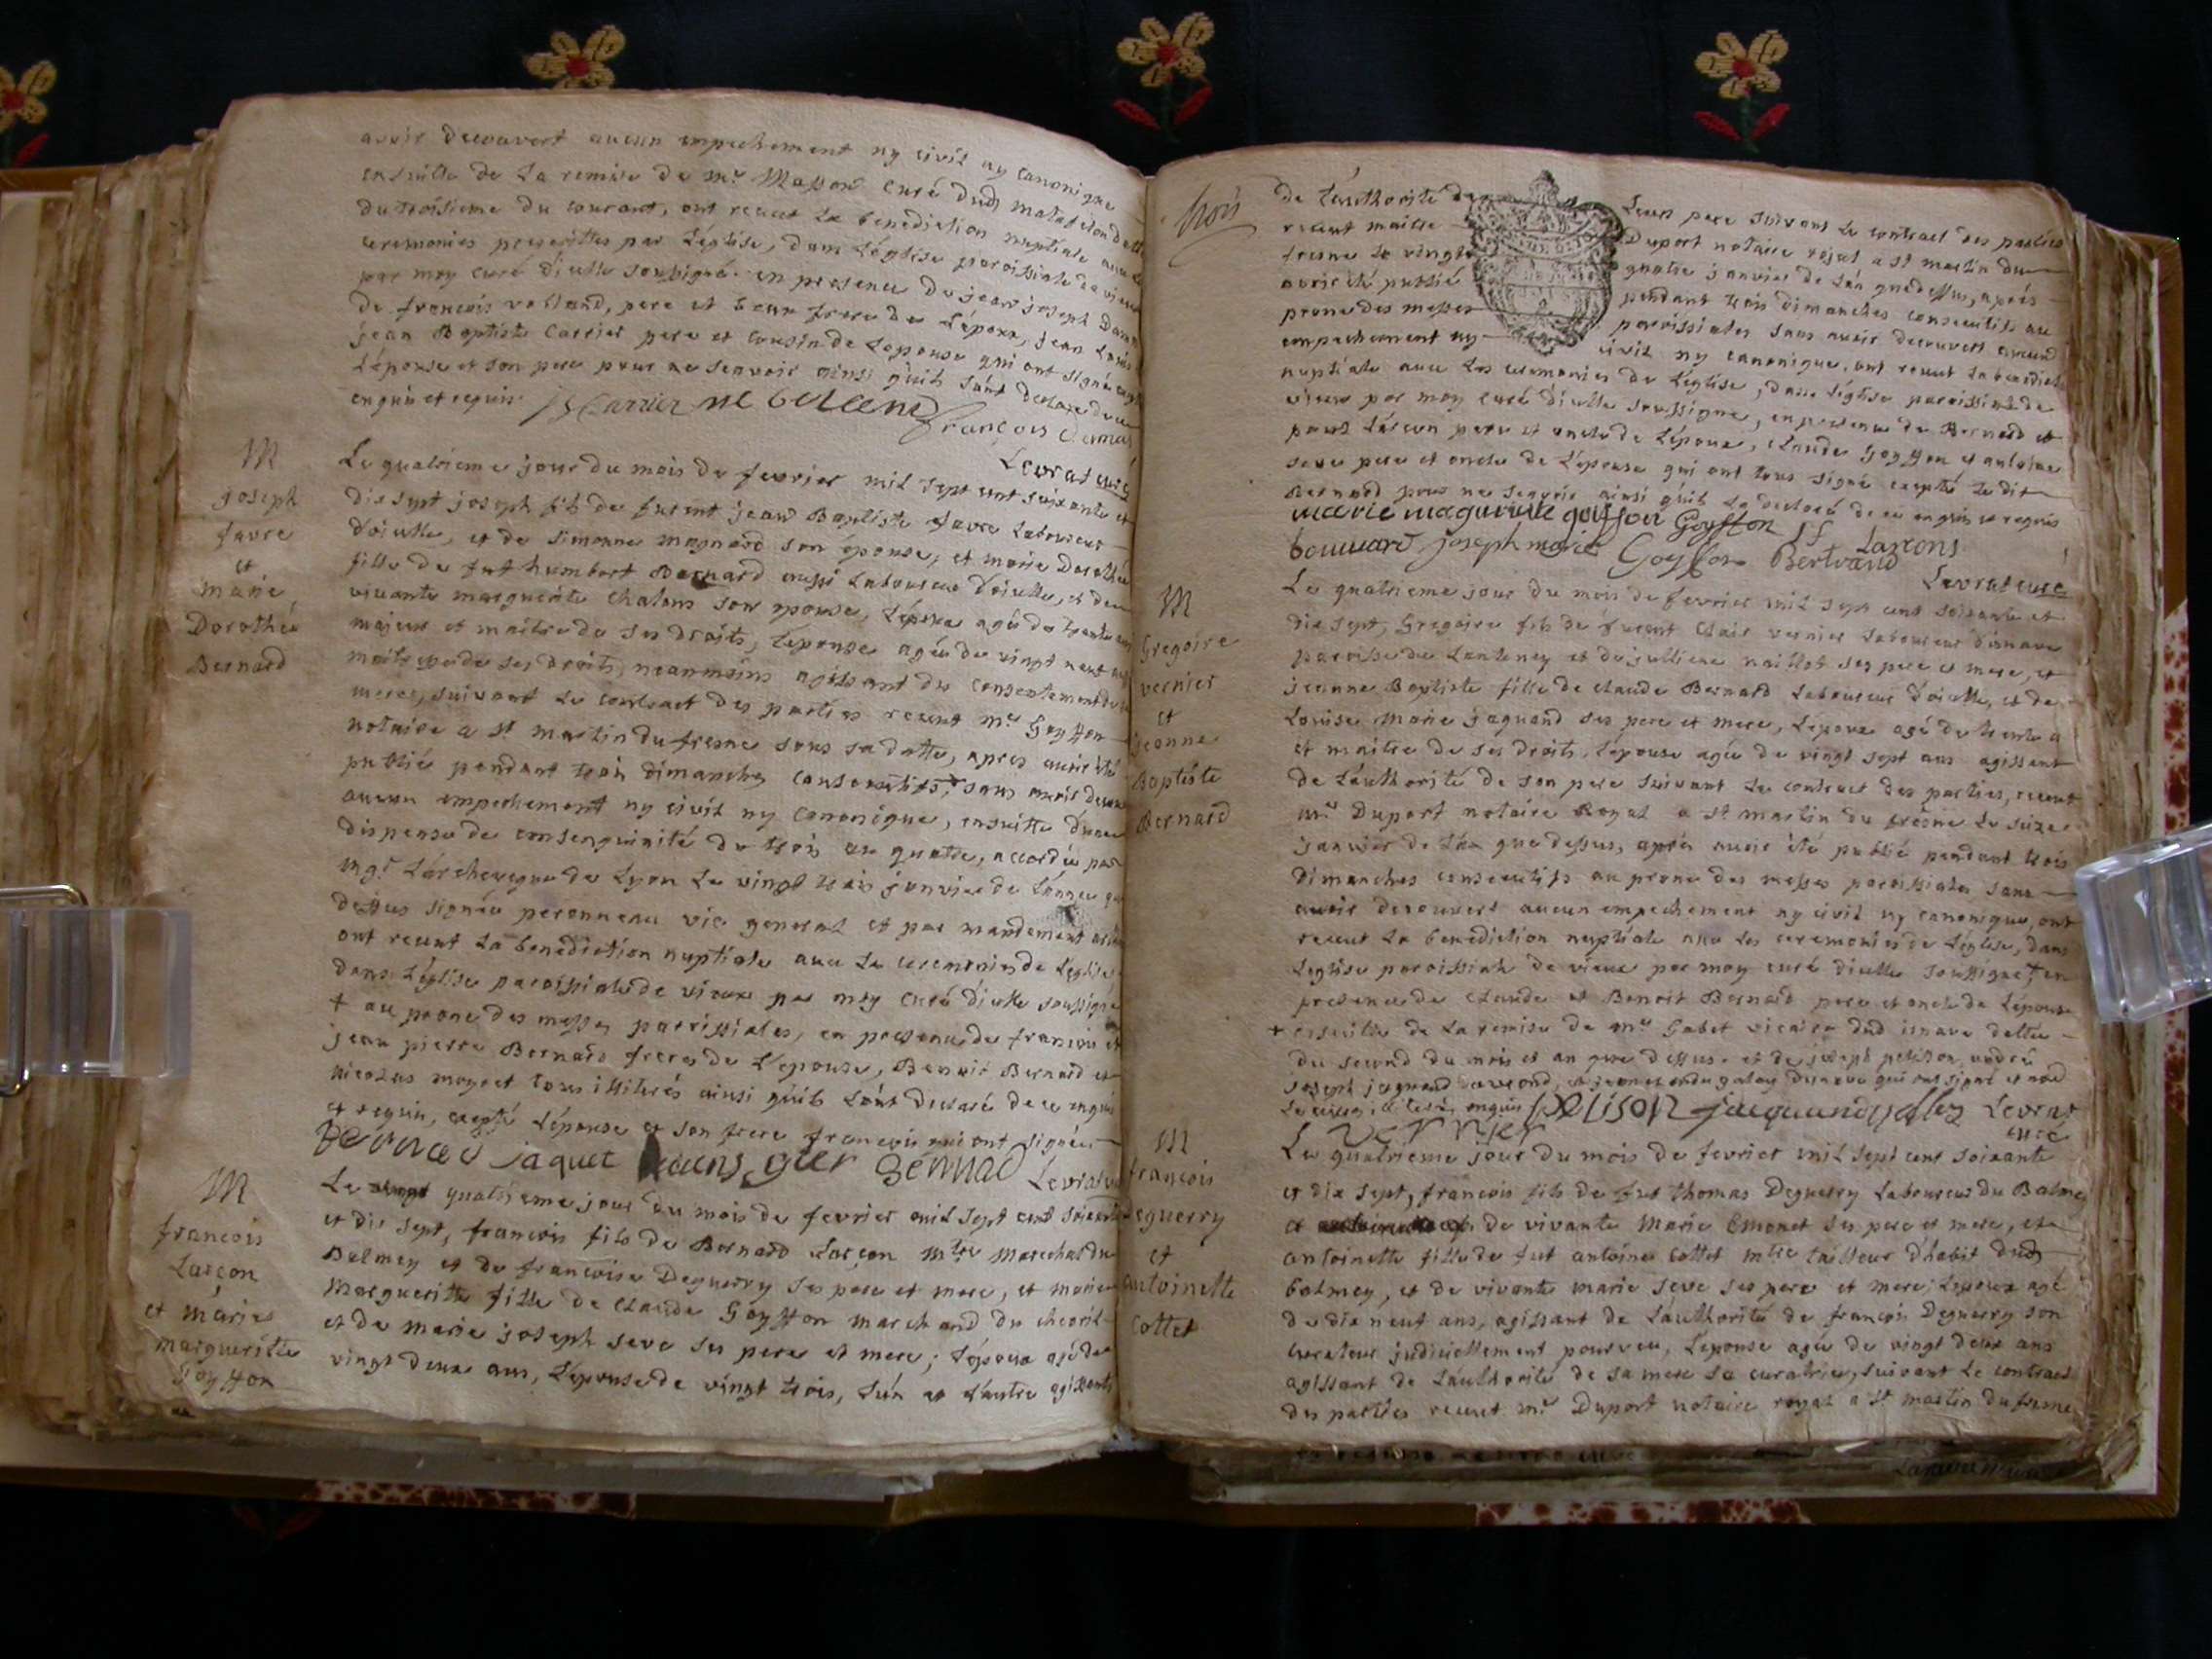 avoir decouvert aucun empechement ny civil ny canonique
ensuitte de la remise de mr Masson curé dud matafelon
du troisieme du courant, ont receut la benediction nuptiale avec les
ceremonies prescrittes par l'église, dans l'église paroissiale de vieux
par moy curé d'icelle soussigné en presence de jean joseph
de francois volland, pere et beau frere de l'époux, jean
jean Baptiste Carrier pere et cousin de l'epouse qui ont signé
l'épouse et son pere pour ne scavoir ainsi qu'ils l'ont declaré de ce
enquis et requis JB Carrier
francois
Levrat curé
M
joseph
favre
et
marie
Dorothée
Bernard
Le quatrieme jour du mois de fevrier mil sept cent soixante et
dix sept joseph fils de fucent jean Baptiste favre laboureur
d'icelle, et de simonne magnard son épouse, et marie Dorothée
fille de fut humbert Bernard aussi laboureur d'icelle, et de
vivante marguerite chalons son epouse, l'époux agé de trente
majeur et maitre de ses droits, l'epouse agée de vingt neuf
maitresse de ses droits, neanmoins agissant du consentement de
mere, suivant le contract des parties receut mre Goyffon
notaire a st martin du fresne sous sa datte, apres avoir été
publié pendant trois dimanches consecutifs, + sans avoir
aucun empechement ny civil ny canonique, ensuitte d'une
dispense de consenguinité du trois au quatre, accordée par
mgr l'archeveque de Lyon le vingt trois janvier de l'année que
dessus signée peronneau vic general et par mandement
ont receut la benediction nuptiale avec les ceremonies de l'église
dans l'église paroissiale de vieux par moy curé d'icelle soussigné
+ au prone des messes parrissiales, en presence de francois et
jean pierre Bernard freres de l'epouse, Benoit Bernard et
nicolas moynet tous illiterés ainsi qu'ils l'ont declaré de ce enquis
et requis, excepté l'épouse et son frere francois qui ont signés
Bernard jaquet Bernad Levrat
M
francois
Larçon
et marie
margueritte
Goyffon
Le quatrieme jour du mois de fevrier mil sept cent soixante
et dix sept, francois fils de Bernard Larçon mtre marechal du
Balmey et de francoise Deguerry ses pere et mere, et marie
Margueritte fille de Claude Goyffon marchand du
et de marie joseph seve ses pere et mere; l'époux agé de
vingt deux ans, l'épouse de vingt trois, l'un et l'autre agissants
trois
de l'authorité de leurs pere suivant le contract des parties
receut maitre Duport notaire rojal a st martin du
fresne le vingt quatre janvier de l'an quedessus, aprés
avoir été publié pendant trois dimanches consecutifs au
prone des messes paroissiales sans avoir decouvert aucun
empechement ny civil ny canonique, ont receut la benediction
nuptiale avec les ceremonies de l'église, dans l'église paroissiale de
vieux par moy curé d'icelle soussigné, en presence de Bernard et
paul Larçon pere et oncle de l'époux, claude Goyffon et antoine
seve pere et oncle de l'épouse qui ont tous signé excepté le dit
Bernard pour ne scavoir ainsi qu'il l'a declaré de ce enquis et requis
marie margurite goiffon Goyffon Larcons
bouuard joseph marie Goyffon Bertrand
Levrat curé
M
Gregoire
vernier
et
jeanne
Baptiste
Bernard
Le quatrieme jour du mois de fevrier mil sept cent soixante et
dix sept, Gregoire fils de fucent Clair vernier laboureur d'isnave
paroisse de Lanteney et de julliene naillot ses pere et mere, et
jeanne Baptiste fille de claude Bernard laboureur d'icelle, et de
Louise Marie jaquand ses pere et mere, l'époux agé de trente a
et maitre de ses droits, l'épouse agée de vingt sept ans agissant
de l'authorité de son pere suivant le contract des parties, receut
mre Duport notaire Royal a st martin du fresne le seize
janvier de l'an que dessus, aprés avoir été publié pendant trois
dimanches consecutifs au prone des messes paroissiales sans
avoir decouvert aucun empechement ny civil ny canonique, ont
receut la benediction nuptiale avec les ceremonies de l'église, dans
l'eglise paroissiale de vieux par moy curé d'icelle soussigné, + en
presence de claude et Benoit Bernard pere et oncle de l'épouse
+ ensuitte de la remise de mre Gabet vicaire dud isnave dattée
du second du mois et an que dessus. et de joseph pelisson
joseph jaquand qui ont signé et non
enquis pelison jacquand Levrat
vernier curé
M
francois
Deguerry
et
antoinette
Cottet
Le quatrieme jour du mois de fevrier mil sept cent soixante
et dix sept, francois fils de fut thomas Deguerry laboureur du Balmey
et de vivante Marie Emonet ses pere et mere, et
antoinette fille de fut antoine Cottet mtre tailleur d'habit dud
balmey, et de vivante marie seve ses pere et mere; l'époux agé
de dix neuf ans, agissant de l'authorité de francois Deguerry son
curateur judiciellement pourveu, l'epouse agée de vingt deux ans
agissant de l'authorité de sa mere sa curatrice, suivant le contract
des parties receut mre Duport notaire royal a st martin du fresne